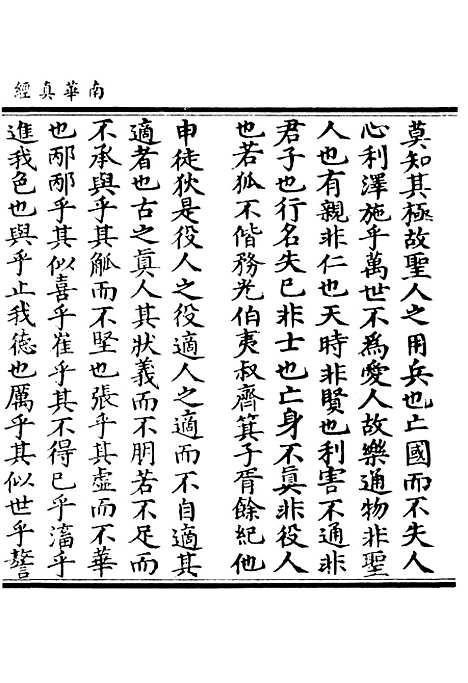 南華真經
莫知其極故聖人之用兵也亡國而不失人
心利澤施乎萬世不為愛人故樂通物非聖
人也有親非仁也天時非賢也利害不通非
君子也行名失已非士也亡身不眞非役人
也若狐不偕務光伯夷叔齊箕子胥餘紀他
申徒狄是役人之役適人之適而不自適其
適者也古之眞人其狀義而不朋若不足而
不承與乎其觚而不堅也張乎其虛而不華
也邴邴乎其似喜乎崔乎其不得已乎滀乎
進我色也與乎止我德也厲乎其似世乎謷